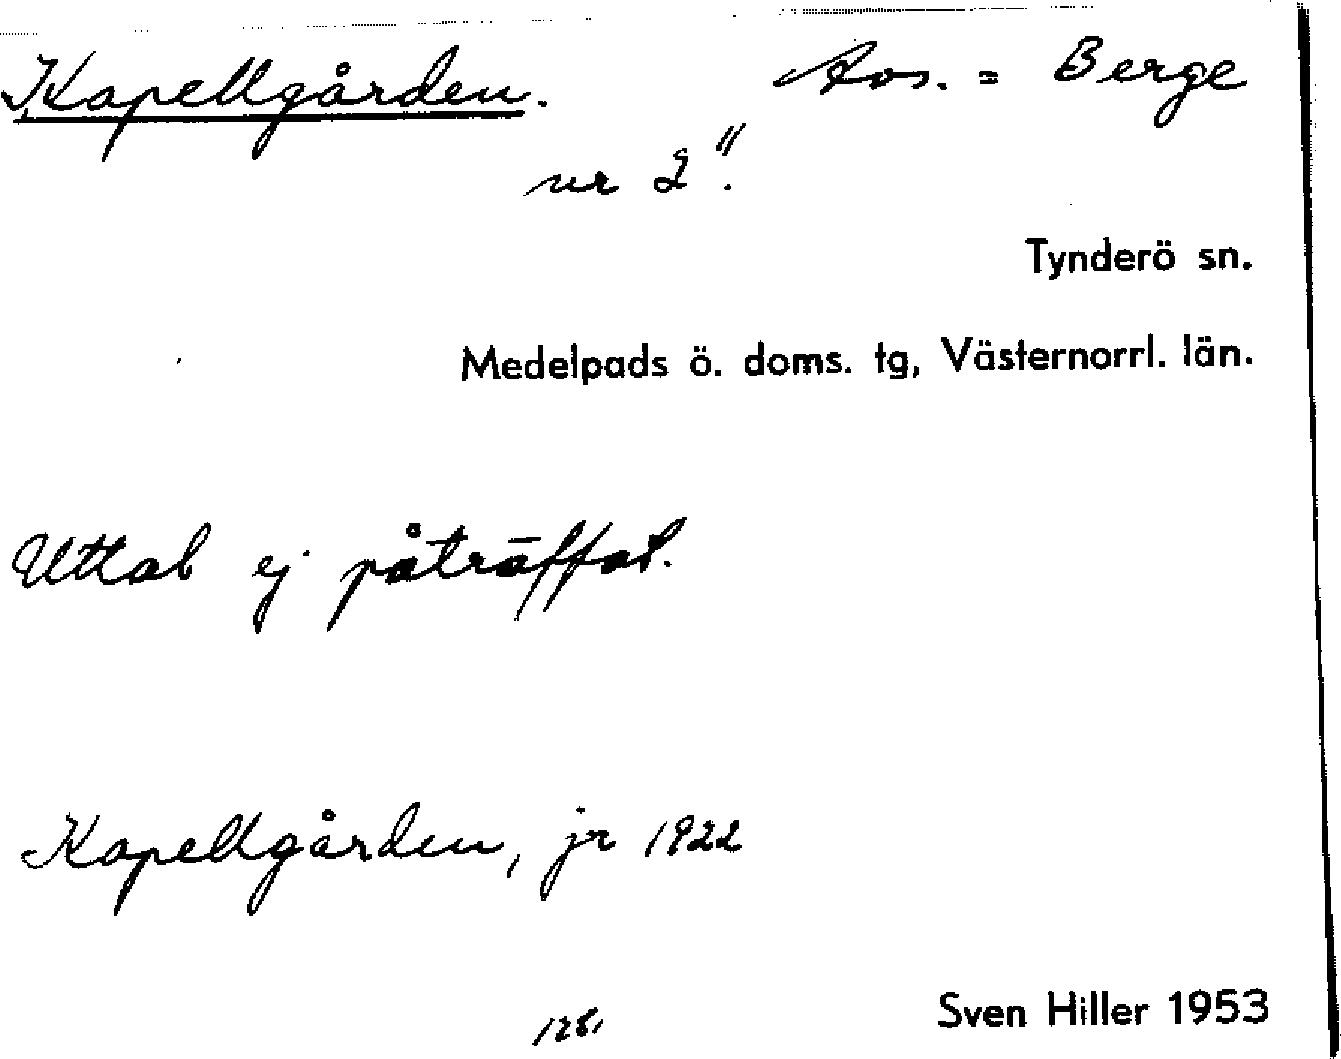 Kapellgården. Hos. = Berge
nr 2".
Tynderö sn.
Medelpads ö. doms. tg, Västernorrl. län.
Uttal ej påträffat.
Kapellgården, jr 1922
Sven Hiller 1953